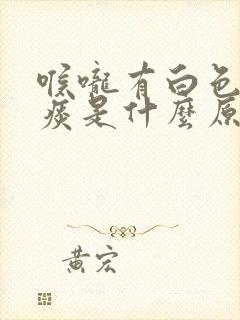 喉嚨有白色
痰是什麼原
黃宏